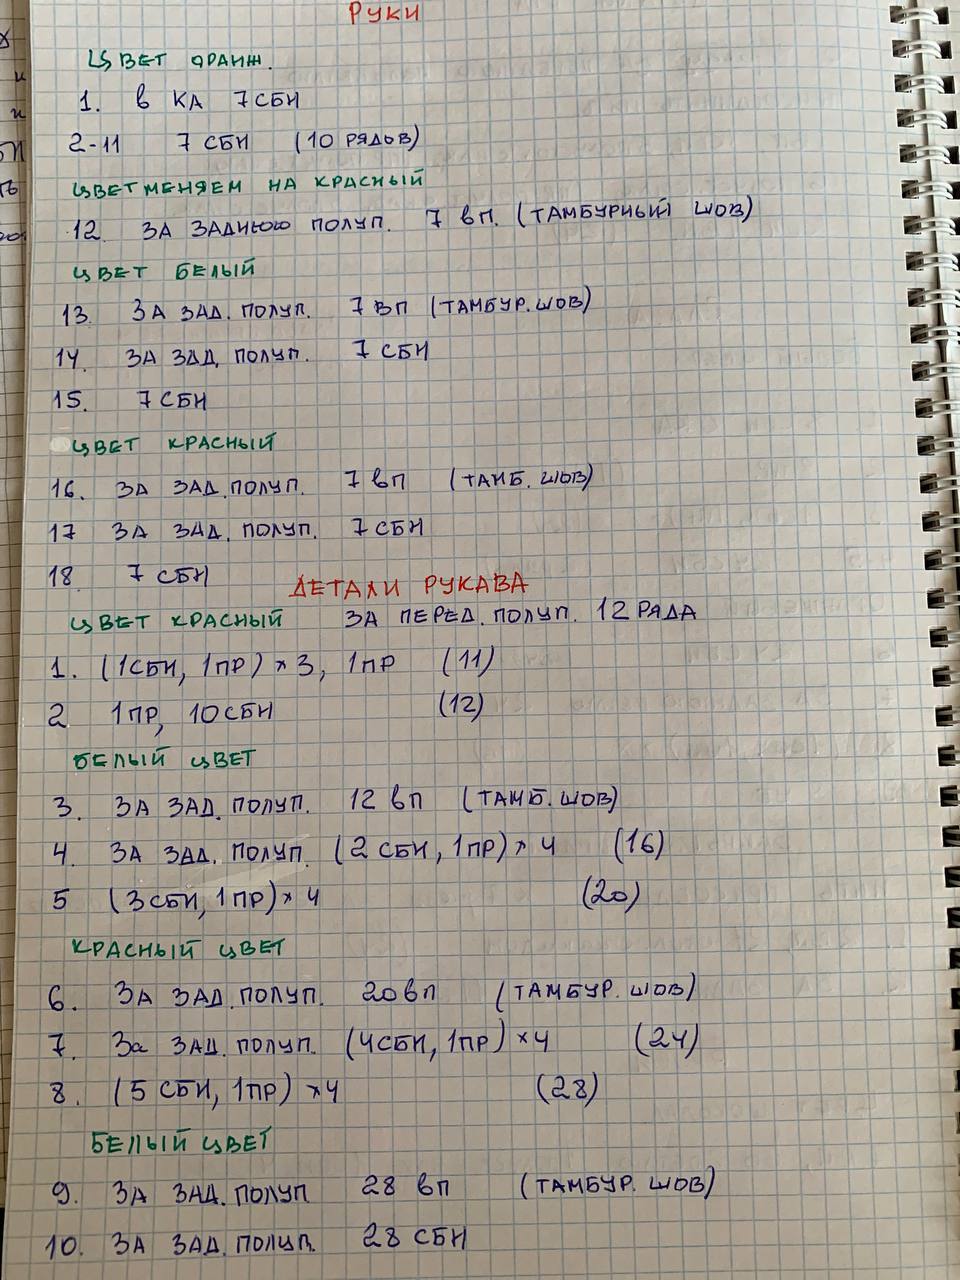 РУКИ
ЦВЕТ ОРАНЖ.
1. в КА 7 СБН
2-11 7 СБН (10 РЯДОВ)
ЦВЕТ МЕНЯЕМ НА КРАСНЫЙ
12. ЗА ЗАДНЮЮ ПОЛУП. 7 ВП. (ТАМБУРНЫЙ ШОВ)
ЦВЕТ БЕЛЫЙ
13. ЗА ЗАД. ПОЛУП. 7 ВП (ТАМБУР. ШОВ)
14. ЗА ЗАД. ПОЛУП. 7 СБН
15. 7 СБН
ЦВЕТ КРАСНЫЙ
16. ЗА ЗАД. ПОЛУП. 7 ВП (ТАМБ. ШОВ)
17 ЗА ЗАД. ПОЛУП. 7 СБН
18 7 СБН
ДЕТАЛИ РУКАВА
ЦВЕТ КРАСНЫЙ ЗА ПЕРЕД. ПОЛУП. 12 РЯДА
1. (1 СБН, 1 ПР) × 3, 1 ПР (11)
2 1 ПР, 10 СБН (12)
БЕЛЫЙ ЦВЕТ
3. ЗА ЗАД. ПОЛУП. 12 ВП (ТАМБ. ШОВ)
4. ЗА ЗАД. ПОЛУП. (2 СБН, 1 ПР) × 4 (16)
5 (3 СБН, 1 ПР) × 4 (20)
КРАСНЫЙ ЦВЕТ
6. ЗА ЗАД. ПОЛУП. 20 ВП (ТАМБУР. ШОВ)
7. За ЗАД. ПОЛУП. (4 СБН, 1 ПР) × 4 (24)
8. (5 СБН, 1 ПР) × 4 (28)
БЕЛЫЙ ЦВЕТ
9. ЗА ЗАД. ПОЛУП 28 ВП (ТАМБУР. ШОВ)
10. ЗА ЗАД. ПОЛУП. 28 СБН